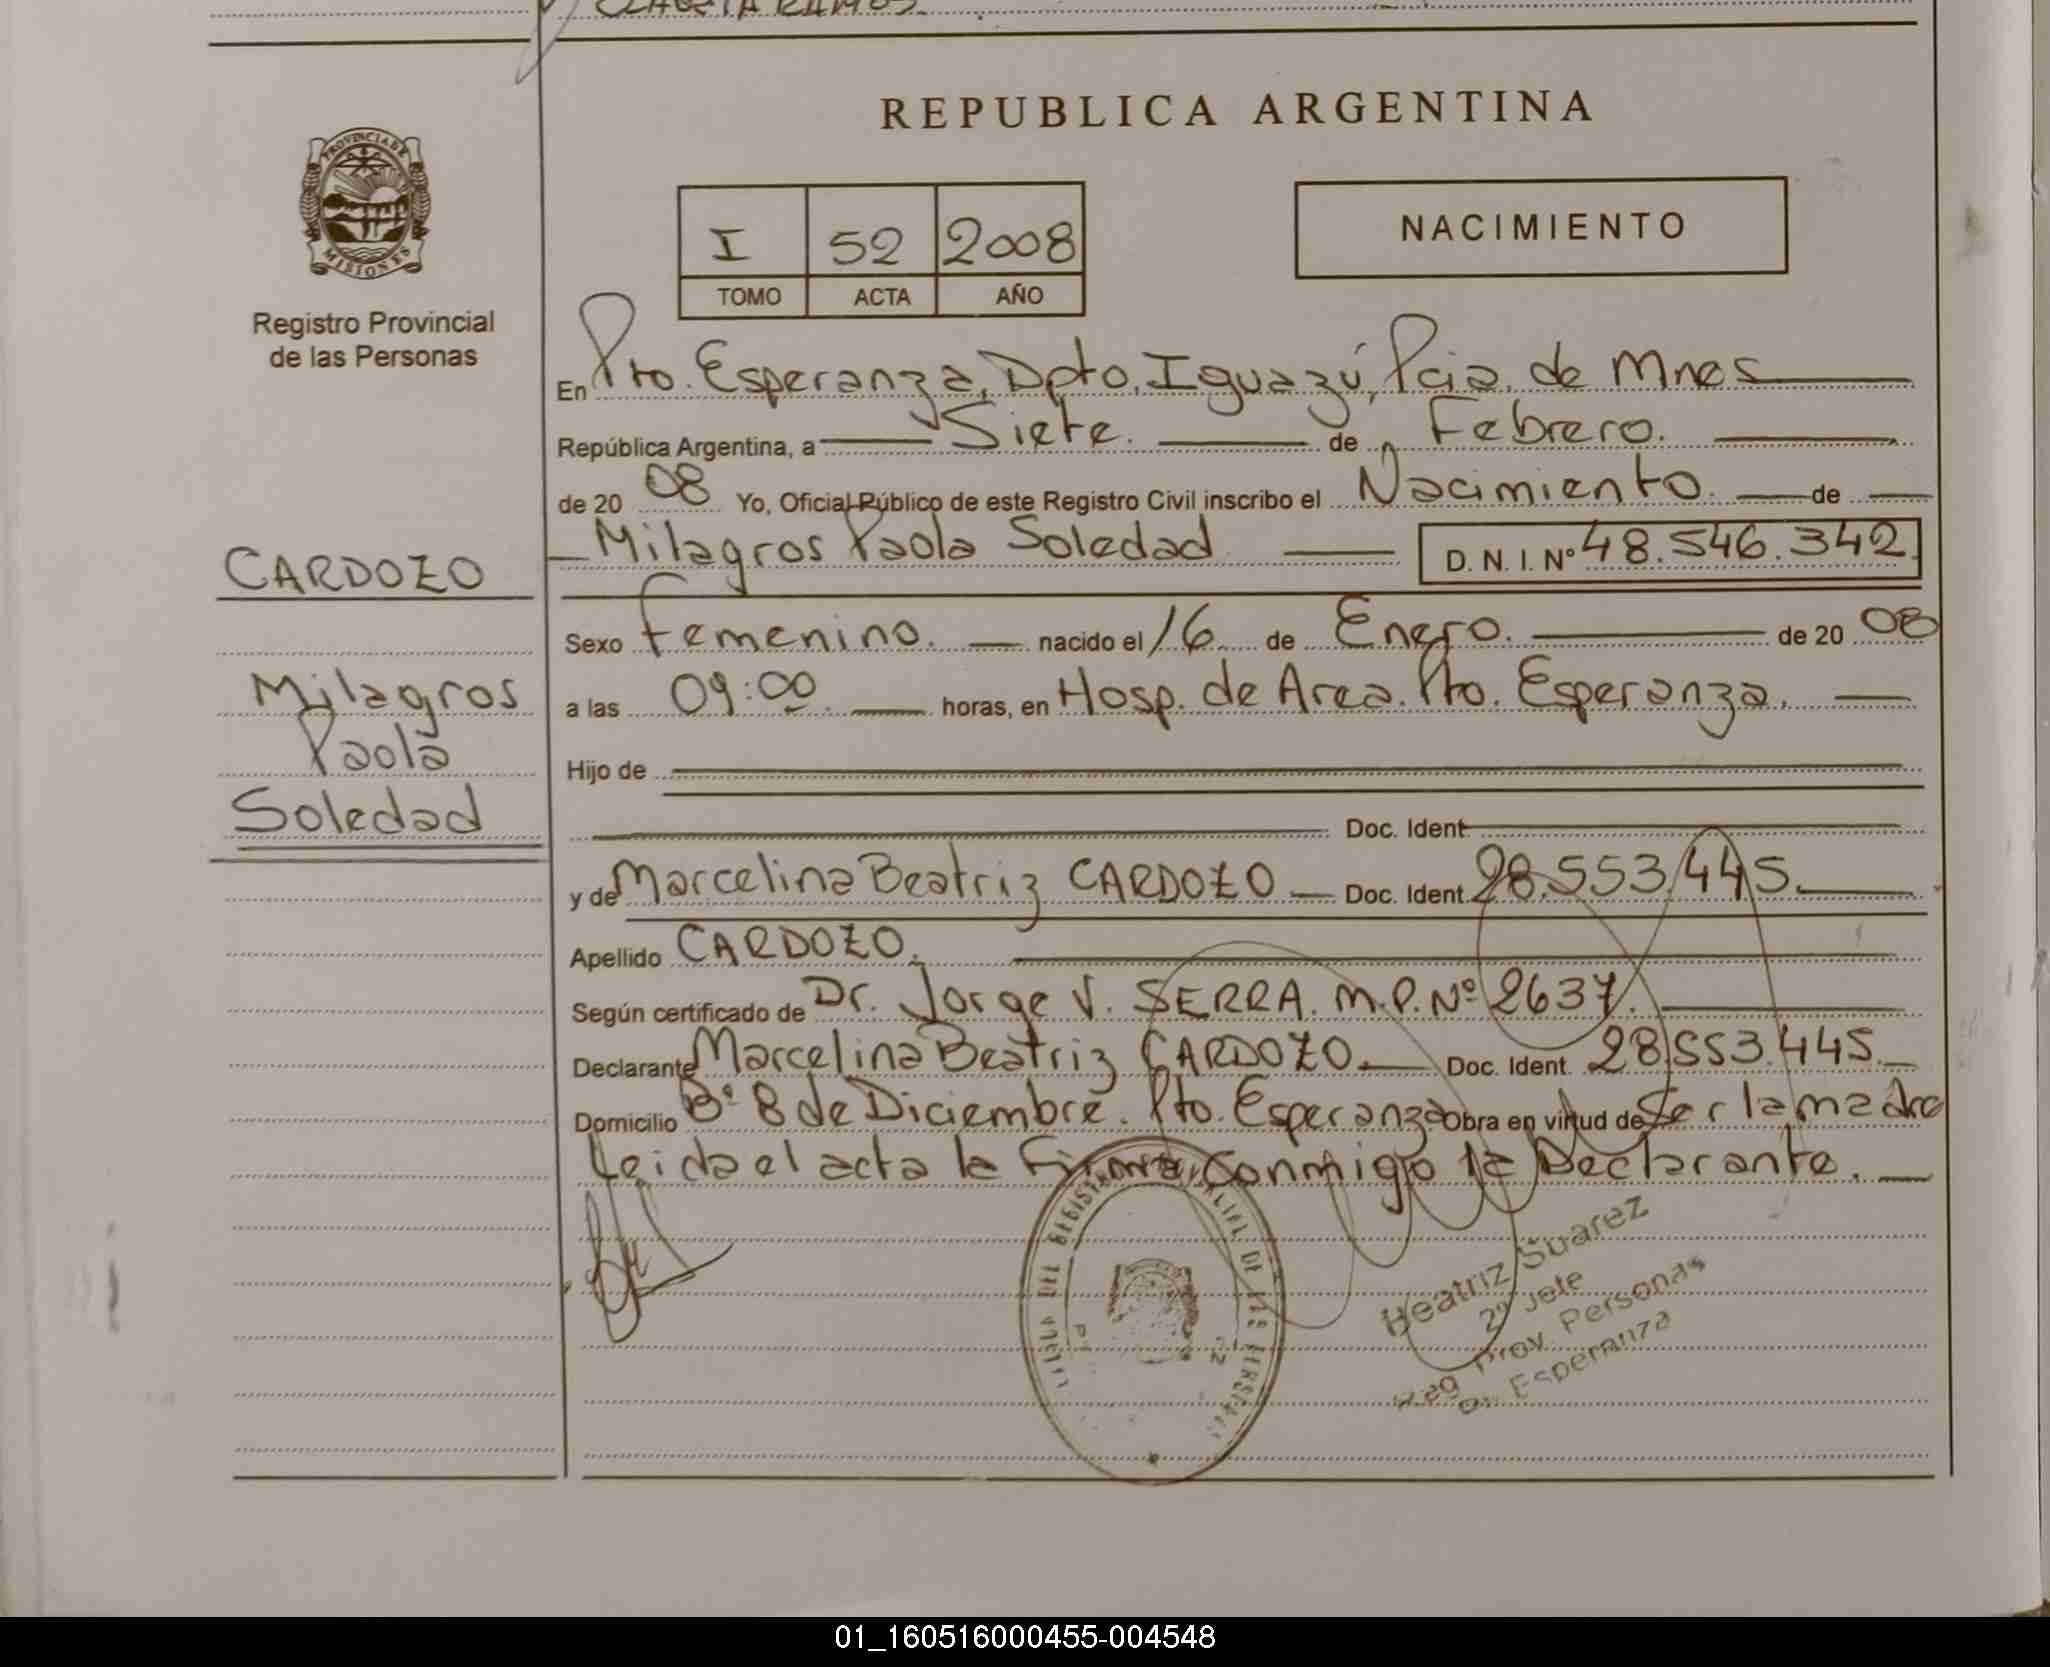 REPUBLICA ARGENTINA
PROVINCIA DE
MISIONES
Registro Provincial
de las Personas
I 52 2008
TOMO ACTA AÑO
NACIMIENTO
En Pto. Esperanza, Dpto. Iguazú, Pcia. de Mnes
República Argentina, a Siete. de Febrero.
de 20 08 Yo, Oficial Público de este Registro Civil inscribo el Nacimiento. de
Milagros Paola Soledad D. N. I. Nº 48.546.342
CARDOZO
Milagros
Paola
Soledad
Sexo Femenino. nacido el 16 de Enero. de 20 08
a las 09:00 horas, en Hosp. de Area. Pto. Esperanza.
Hijo de
Doc. Ident
y de Marcelina Beatriz CARDOZO Doc. Ident. 28.553.445.
Apellido CARDOZO.
Según certificado de Dr. Jorge V. SERRA. M.P. Nº 2637.
Declarante Marcelina Beatriz CARDOZO. Doc. Ident. 28.553.445.
Domicilio Bº 8 de Diciembre. Pto. Esperanza Obra en virtud de Ser la madre
Leida el acta la firma, conmigo la Declarante.
Beatriz Suarez
2º Jefe
Reg Prov. Personas
Esperanza
01_160516000455-004548